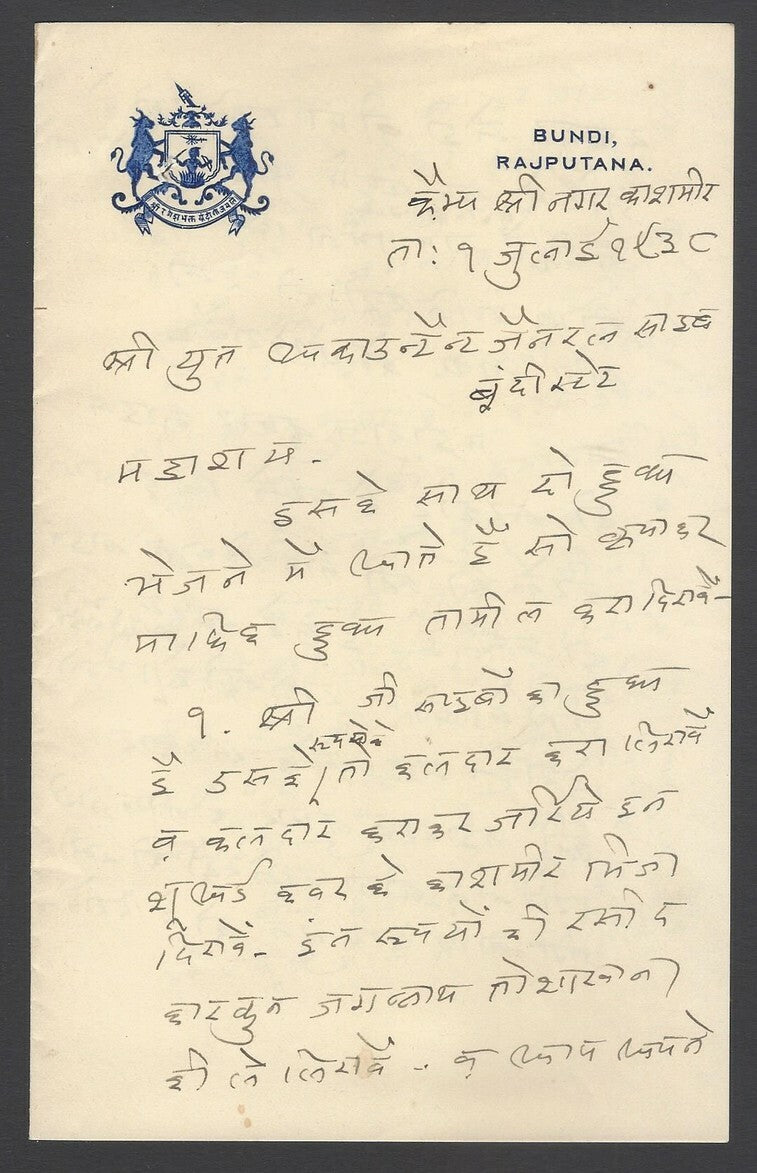 BUNDI,
RAJPUTANA.
कैम्प श्रीनगर काशमीर
ता: १ जुलाई १९३८
श्री युत अकाउन्टैन्ट जैनरल साहब
बूंदी स्टेट
महाशय.
इसके साथ दो हुक्म
भेजने में आते हैं सो कृपा कर
माफिक हुक्म तामील करा दिरावें-
१. श्री जी साहबों का हुक्म
है उसके रुपयों के तो कलदार करा लिरावें
व कलदार कराकर जरिये इन
काशमीर भिजा
दिरावें- इन रुपयों की रसीद
कारकुन जगन्नाथ तोशाखाना
की ले लिरावें - व आप अपने